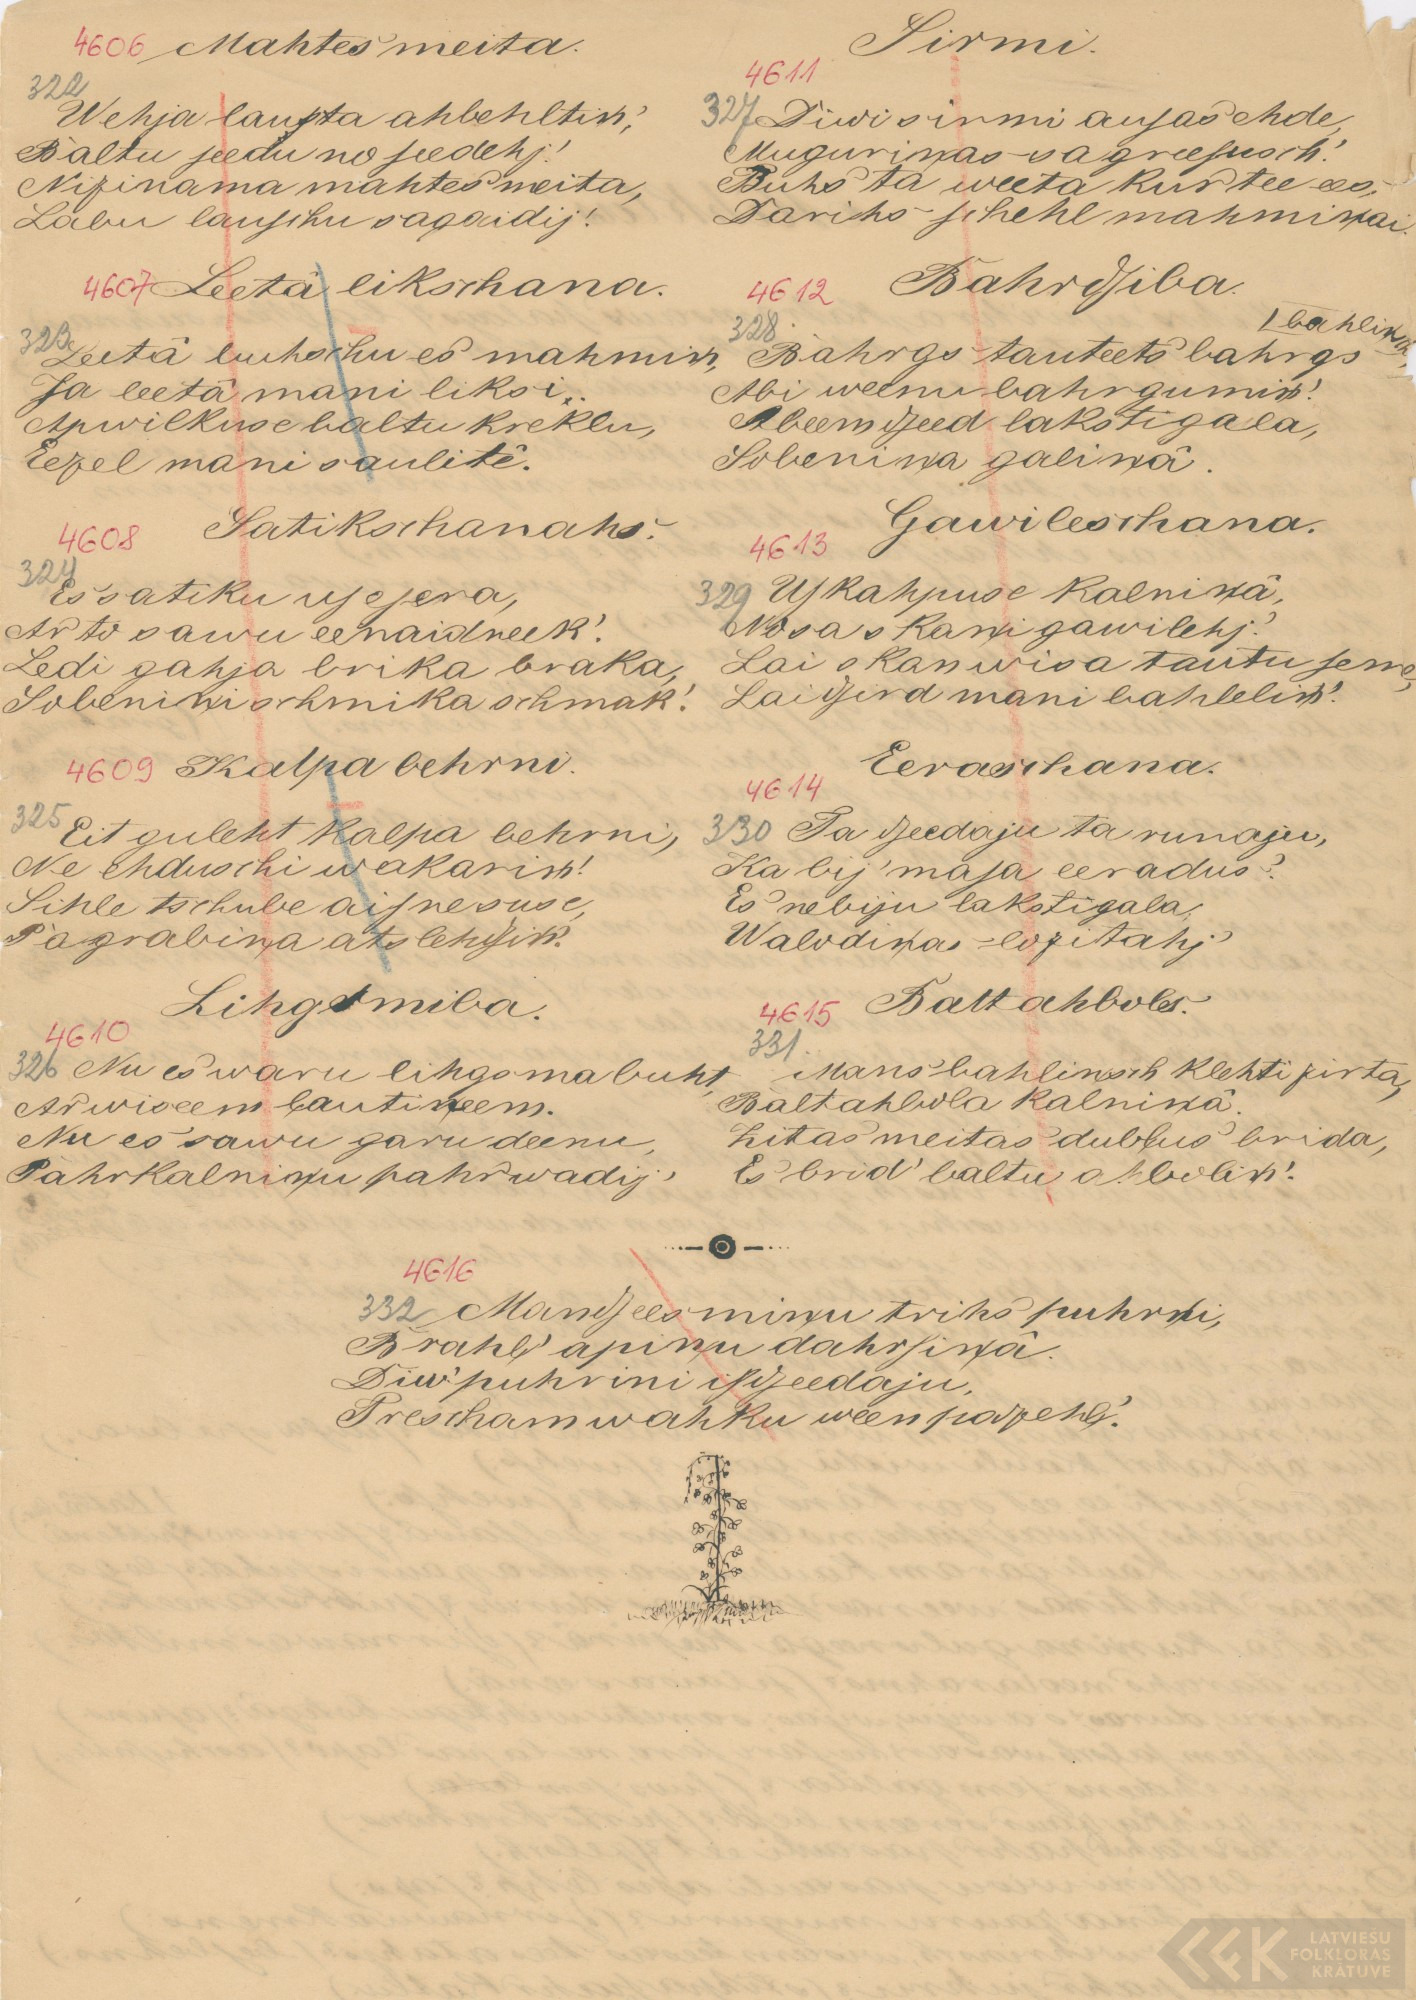 4606 Mahtes meita.
322
Wehja lausta ahbehltiņ',
Baltu seedu no seedehj!
Nizinama mahtes meita,
Labu lauschu sagaidij!
4607 Leetâ likschana.
323
Leetâ luhschu es mahmiņ,
Ja leetâ mani liksi,
Apwilkuse baltu kreklu,
Eezel mani saulitê.
4608 Satikschanahs.
324
Es satiku us esera,
Ar to sawu eenaidneek'.
Ledi gahja brika braka,
Sobeniņi schmika schmak!
4609 Kalpa behrni.
325 Eit guleht kalpa behrni,
Ne ehduschi wakariņ!
Sihle tschube aisnesuse,
Pagrabiņa atslehdsiņ'.
Lihgsmiba.
4610
326 Nu es waru lihgsma buht,
Ar wiseem lautiņeem.
Nu es sawu garu deenu,
Pahr kalniņu pahrwadij'
Sirmi.
4611
327 Diwi sirmi ausas ehde,
Muguriņas sagreesusch'.
Buhs ta weeta kur tee ees,
Darihs schehl mahmiņai.
4612 Bahrdsiba.
328
Bahrgs tauteets bahrgs bahliņsch
Abi weenu bahrgumiņ!
Abeem dseed lakstigala,
Sobeniņa galiņâ.
Gawileschana.
4613
329 Uskahpuse kalniņâ,
Nosaskaņi gawilehj!
Lai skan wisa tautu seme,
Lai dsird mani bahleliņ'!
Eeraschana.
4614
330 Ta dseedaju ta runaju,
Ka bij' masa eeradus'.
Es nebiju lakstigala,
Walodiņas lozitahj'
4615 Baltahboles.
331.
Mans bahliņsch klehti pirta,
Baltahbola kalniņâ.
Zitas meitas dubļus brida,
Es brid' baltu ahboliņ'!
4616
332 Man dseesmiņu trihs puhriņi,
Brahļ' apiņu dahrsiņâ.
Diw' puhrini isdseedaju,
Trescham wahku ween pazehl'.
LATVIEŠU
FOLKLORAS
KRĀTUVE